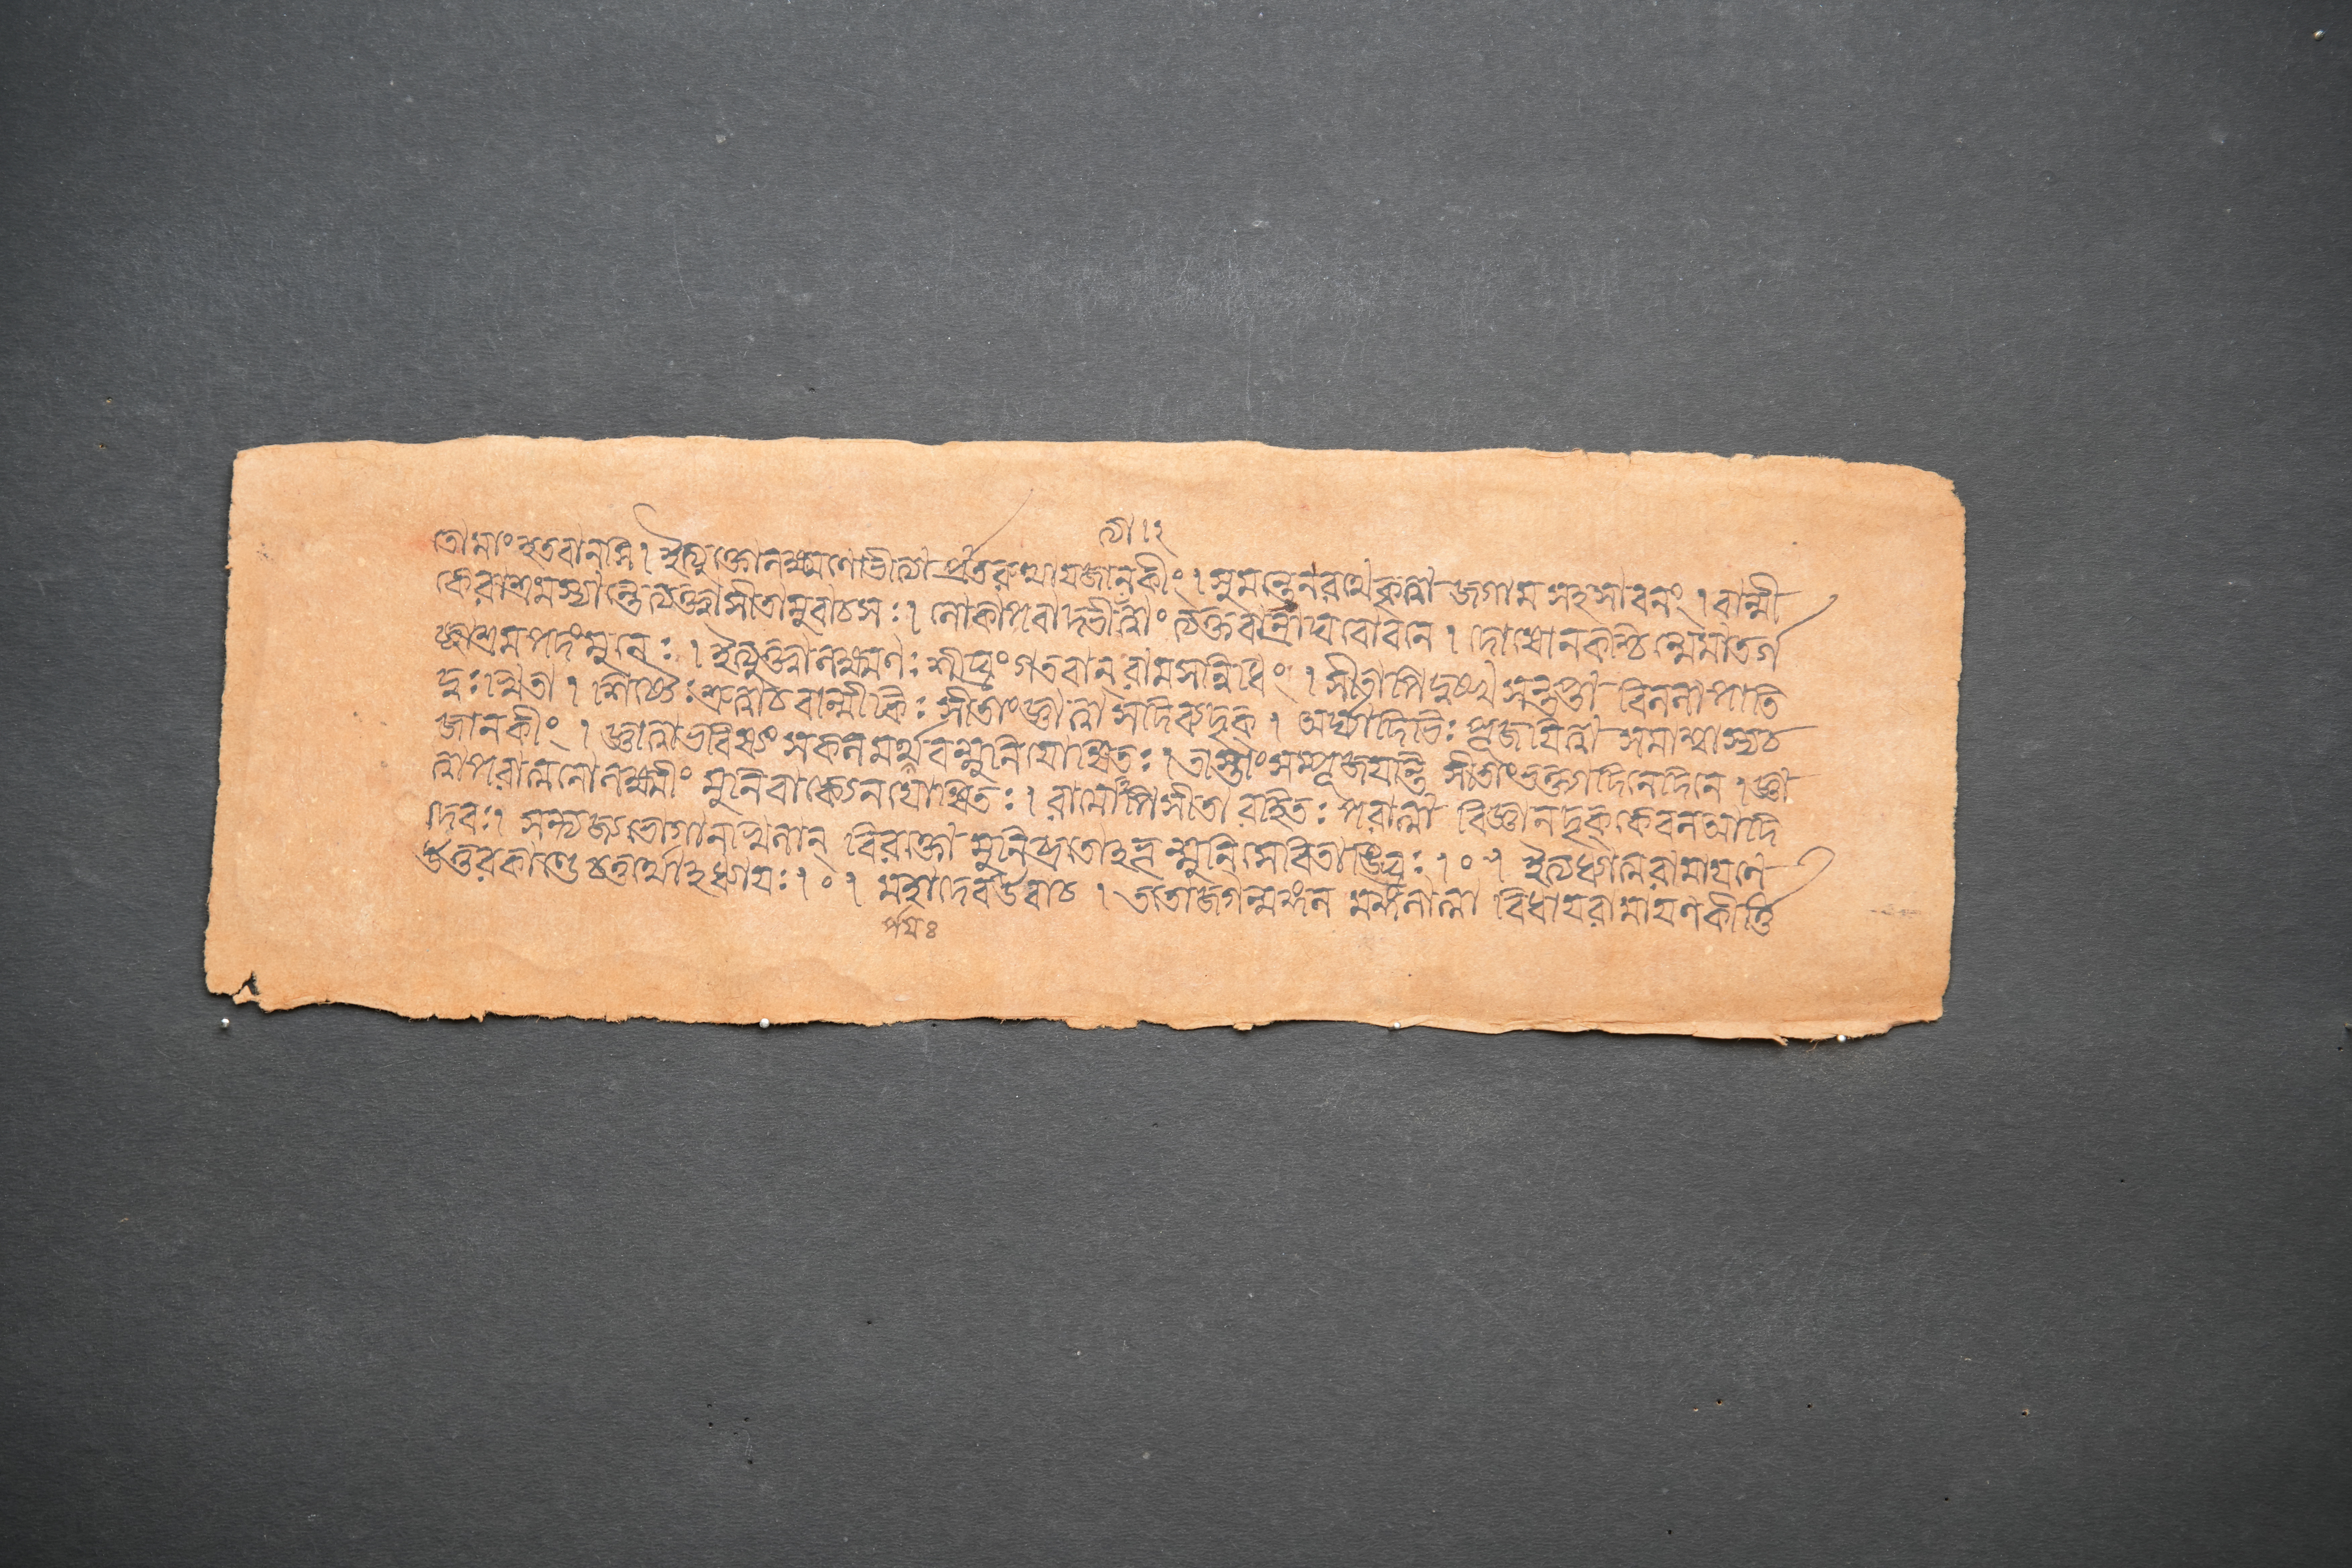 ত্যা ১২
তো মাং হতবানসি । ইত্যুক্তো লক্ষ্মণো ভীত্যা প্রাতরুত্থায় জানকীং । সুমন্ত্রেন রথে কৃত্বা জগাম সহসা বনং । বাল্মী
কেরাশ্রমস্যান্তে ত্যক্ত্বা সীতামুবাচ সঃ । লোকাপবাদভীত্যা ত্বাং ত্যক্তবান্ রাঘবো বনে । দোষো ন কশ্চিন্মে মাতর্গ
চ্ছাশ্রমপদং মুনেঃ । ইত্যুক্ত্বা লক্ষ্মণঃ শীঘ্রং গতবান্ রামসন্নিধিং । সীতাপি দুঃখসন্তপ্তা বিললাপাতি
দুঃখিতা । শিষ্যৈঃ শ্রুত্বা চ বাল্মীকিঃ সীতাং জ্ঞাত্বা স দিব্যদৃক্ । অর্ঘ্যাদিভিঃ পূজয়িত্বা সমাশ্বাস্য চ
জানকীং । জ্ঞাত্বা ভবিষ্যং সকলমর্থবন্মুনিযোষিতঃ । তাস্তাং সম্পূজয়ন্তি সীতাং ভক্ত্যা দিনে দিনে । জ্ঞা
ত্বা পরাত্মনো লক্ষ্মীং মুনিবাক্যেন যোষিতঃ । রামোঽপি সীতা রহিতঃ পরাত্মা বিজ্ঞানদৃক্ কেবল আদি
দেবঃ । সন্ত্যজ্য ভোগানখিলান্ বিরক্তো মুনিব্রতোঽভূন্মুনিসেবিতাঙ্ঘ্রিঃ । ০ । ইত্যধ্যাত্মরামায়ণে
উত্তরকাণ্ডে চতুর্থোঽধ্যায়ঃ । ০ । মহাদেব উবাচ । ততো জগন্মঙ্গল মঙ্গলাত্মা বিধায় রামায়ণকীর্ত্তি